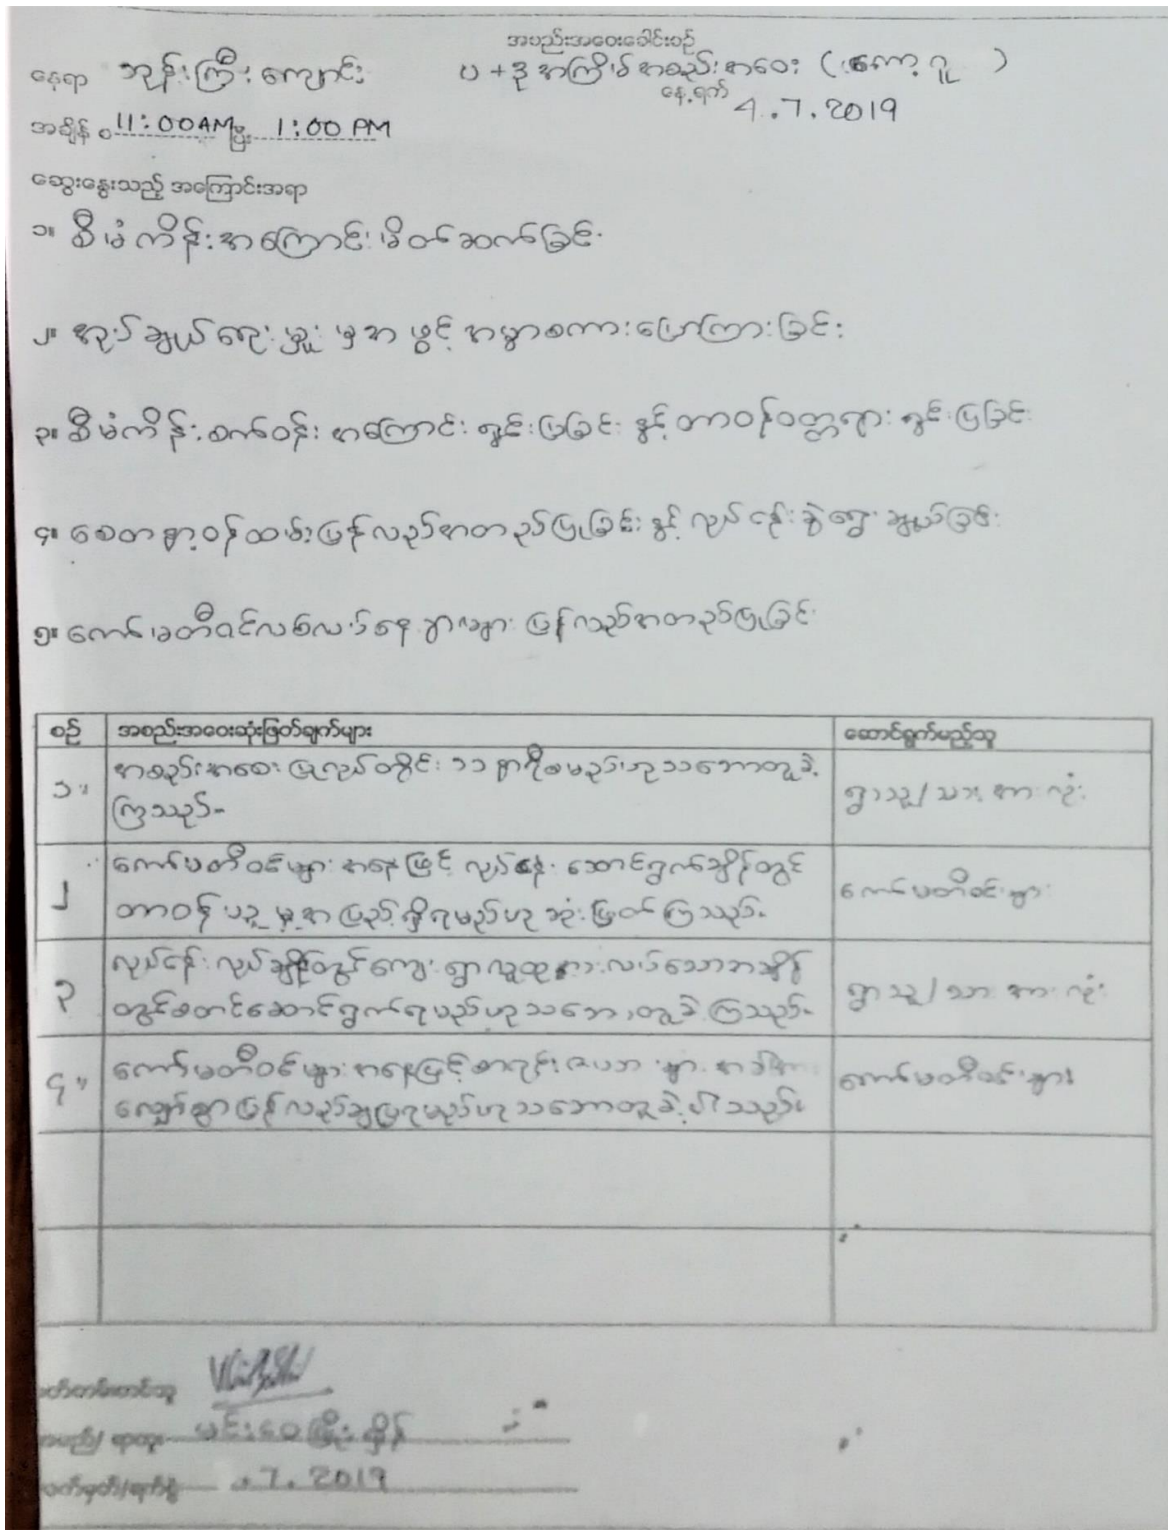 အစည်းအဝေးခေါင်းစဉ်
နေရာ ဘုန်းကြီးကျောင်း ပ + ဒု အကြိမ် အစည်းအဝေး (ကော့ဂူ )
နေ့ရက် 4.7.2019
အချိန် ၀ 11:00AM မှ 1:00 PM
ဆွေးနွေးသည့် အကြောင်းအရာ
၁။ စီမံကိန်းအကြောင်းမိတ်ဆက်ခြင်း
၂။ အုပ်ချုပ်ရေးမှူးမှ အဖွင့်အမှာစကားပြောကြားခြင်း
၃။ စီမံကိန်းစက်ဝန်းအကြောင်းရှင်းပြခြင်း နှင့် တာဝန်ဝတ္တရားရှင်းပြခြင်း
၄။ စေတနာ့ဝန်ထမ်းပြန်လည်အတည်ပြုခြင်း နှင့် လုပ်ငန်းခွဲရွေးချယ်ခြင်း
၅။ ကော်မတီဝင်လစ်လပ်နေရာများ ပြန်လည်အတည်ပြုခြင်း
စဉ် အစည်းအဝေးဆုံးဖြတ်ချက်များ ဆောင်ရွက်မည့်သူ
၁။ အစည်းအဝေးပြုလုပ်တိုင်း ၁၁ နာရီစမည်ဟုသဘောတူခဲ့ ရွာသူ/သားအားလုံး
ကြသည်။
၂ ကော်မတီဝင်များအနေဖြင့် လုပ်ငန်းဆောင်ရွက်ချိန်တွင် ကော်မတီဝင်များ
တာဝန်ယူမှုအပြည့်ရှိရမည်ဟုဆုံးဖြတ်ကြသည်။
၃ လုပ်ငန်းလုပ်ချိန်တွင်ကျေးရွာလူထုအားလပ်သောအချိန် ရွာသူ/သားအားလုံး
တွင်စတင်ဆောင်ရွက်ရမည်ဟုသဘောတူခဲ့ကြသည်။
၄။ ကော်မတီဝင်များအနေဖြင့်စာရင်းဇယားများအခါအား ကော်မတီဝင်များ
လျော်စွာပြန်လည်ချပြရမည်ဟုသဘောတူခဲ့ပါသည်။
မှတ်တမ်းတင်သူ
အမည်/ ရာထူး မင်းဝေဖြိုးရှိန်
လက်မှတ်/ရက်စွဲ .7.2019